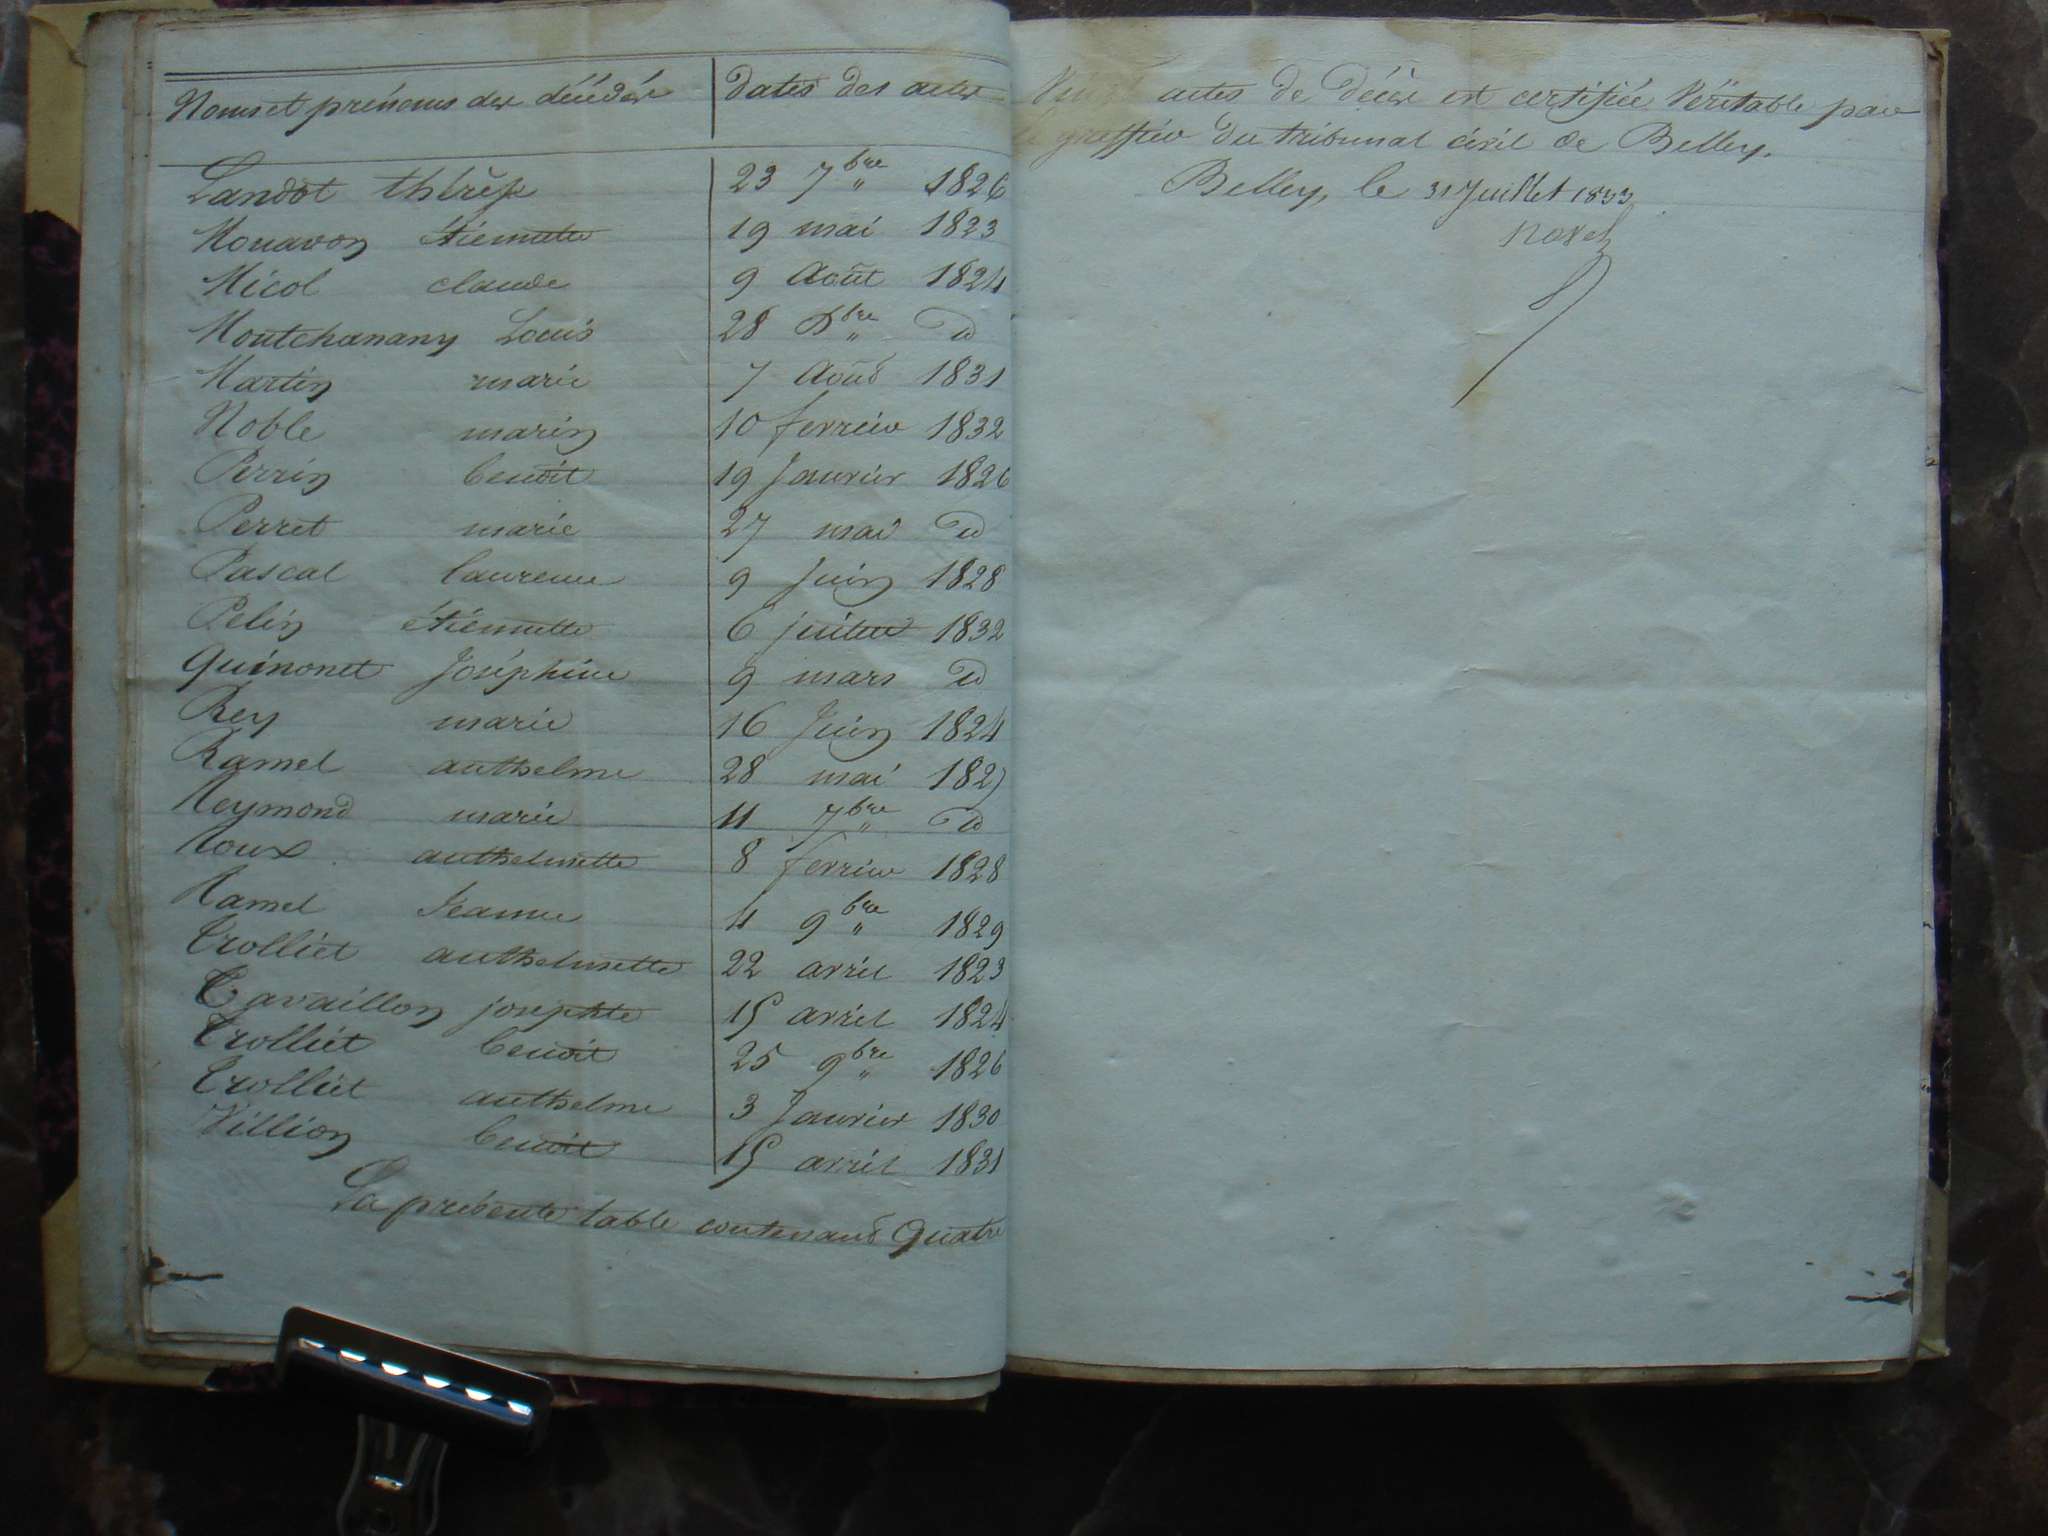 Noms et prénoms des décédés Dates des actes
Landot thérèse 23 7bre 1826
Monavon étiennette 19 mai 1823
Micol claude 9 Août 1824
Montchanany Louis 28 Dbre do
Martin marie 7 Août 1831
Noble marin 10 fevrier 1832
Perrin benoit 19 Janvier 1826
Perret marie 27 mai do
Pascal laurence 9 Juin 1828
Pelin étiennette 6 juillet 1832
Quinonet Joséphine 9 mars do
Rey marie 16 Juin 1824
Ramel anthelme 28 mai 1827
Reymond marie 11 7bre do
Roux anthelmette 8 fevrier 1828
Ramel Jeanne 11 9bre 1829
Trolliet anthelmette 22 avril 1823
Tavaillon josephte 15 avril 1824
Trolliet benoit 25 9bre 1826
Trolliet anthelme 3 Janvier 1830
Villion benoit 15 avril 1831
La présente table contenant Quatre
Vingt actes de décès est certifiée Véritable par
le greffier du tribunal civil de Belley.
Belley, le 31 Juillet 1833